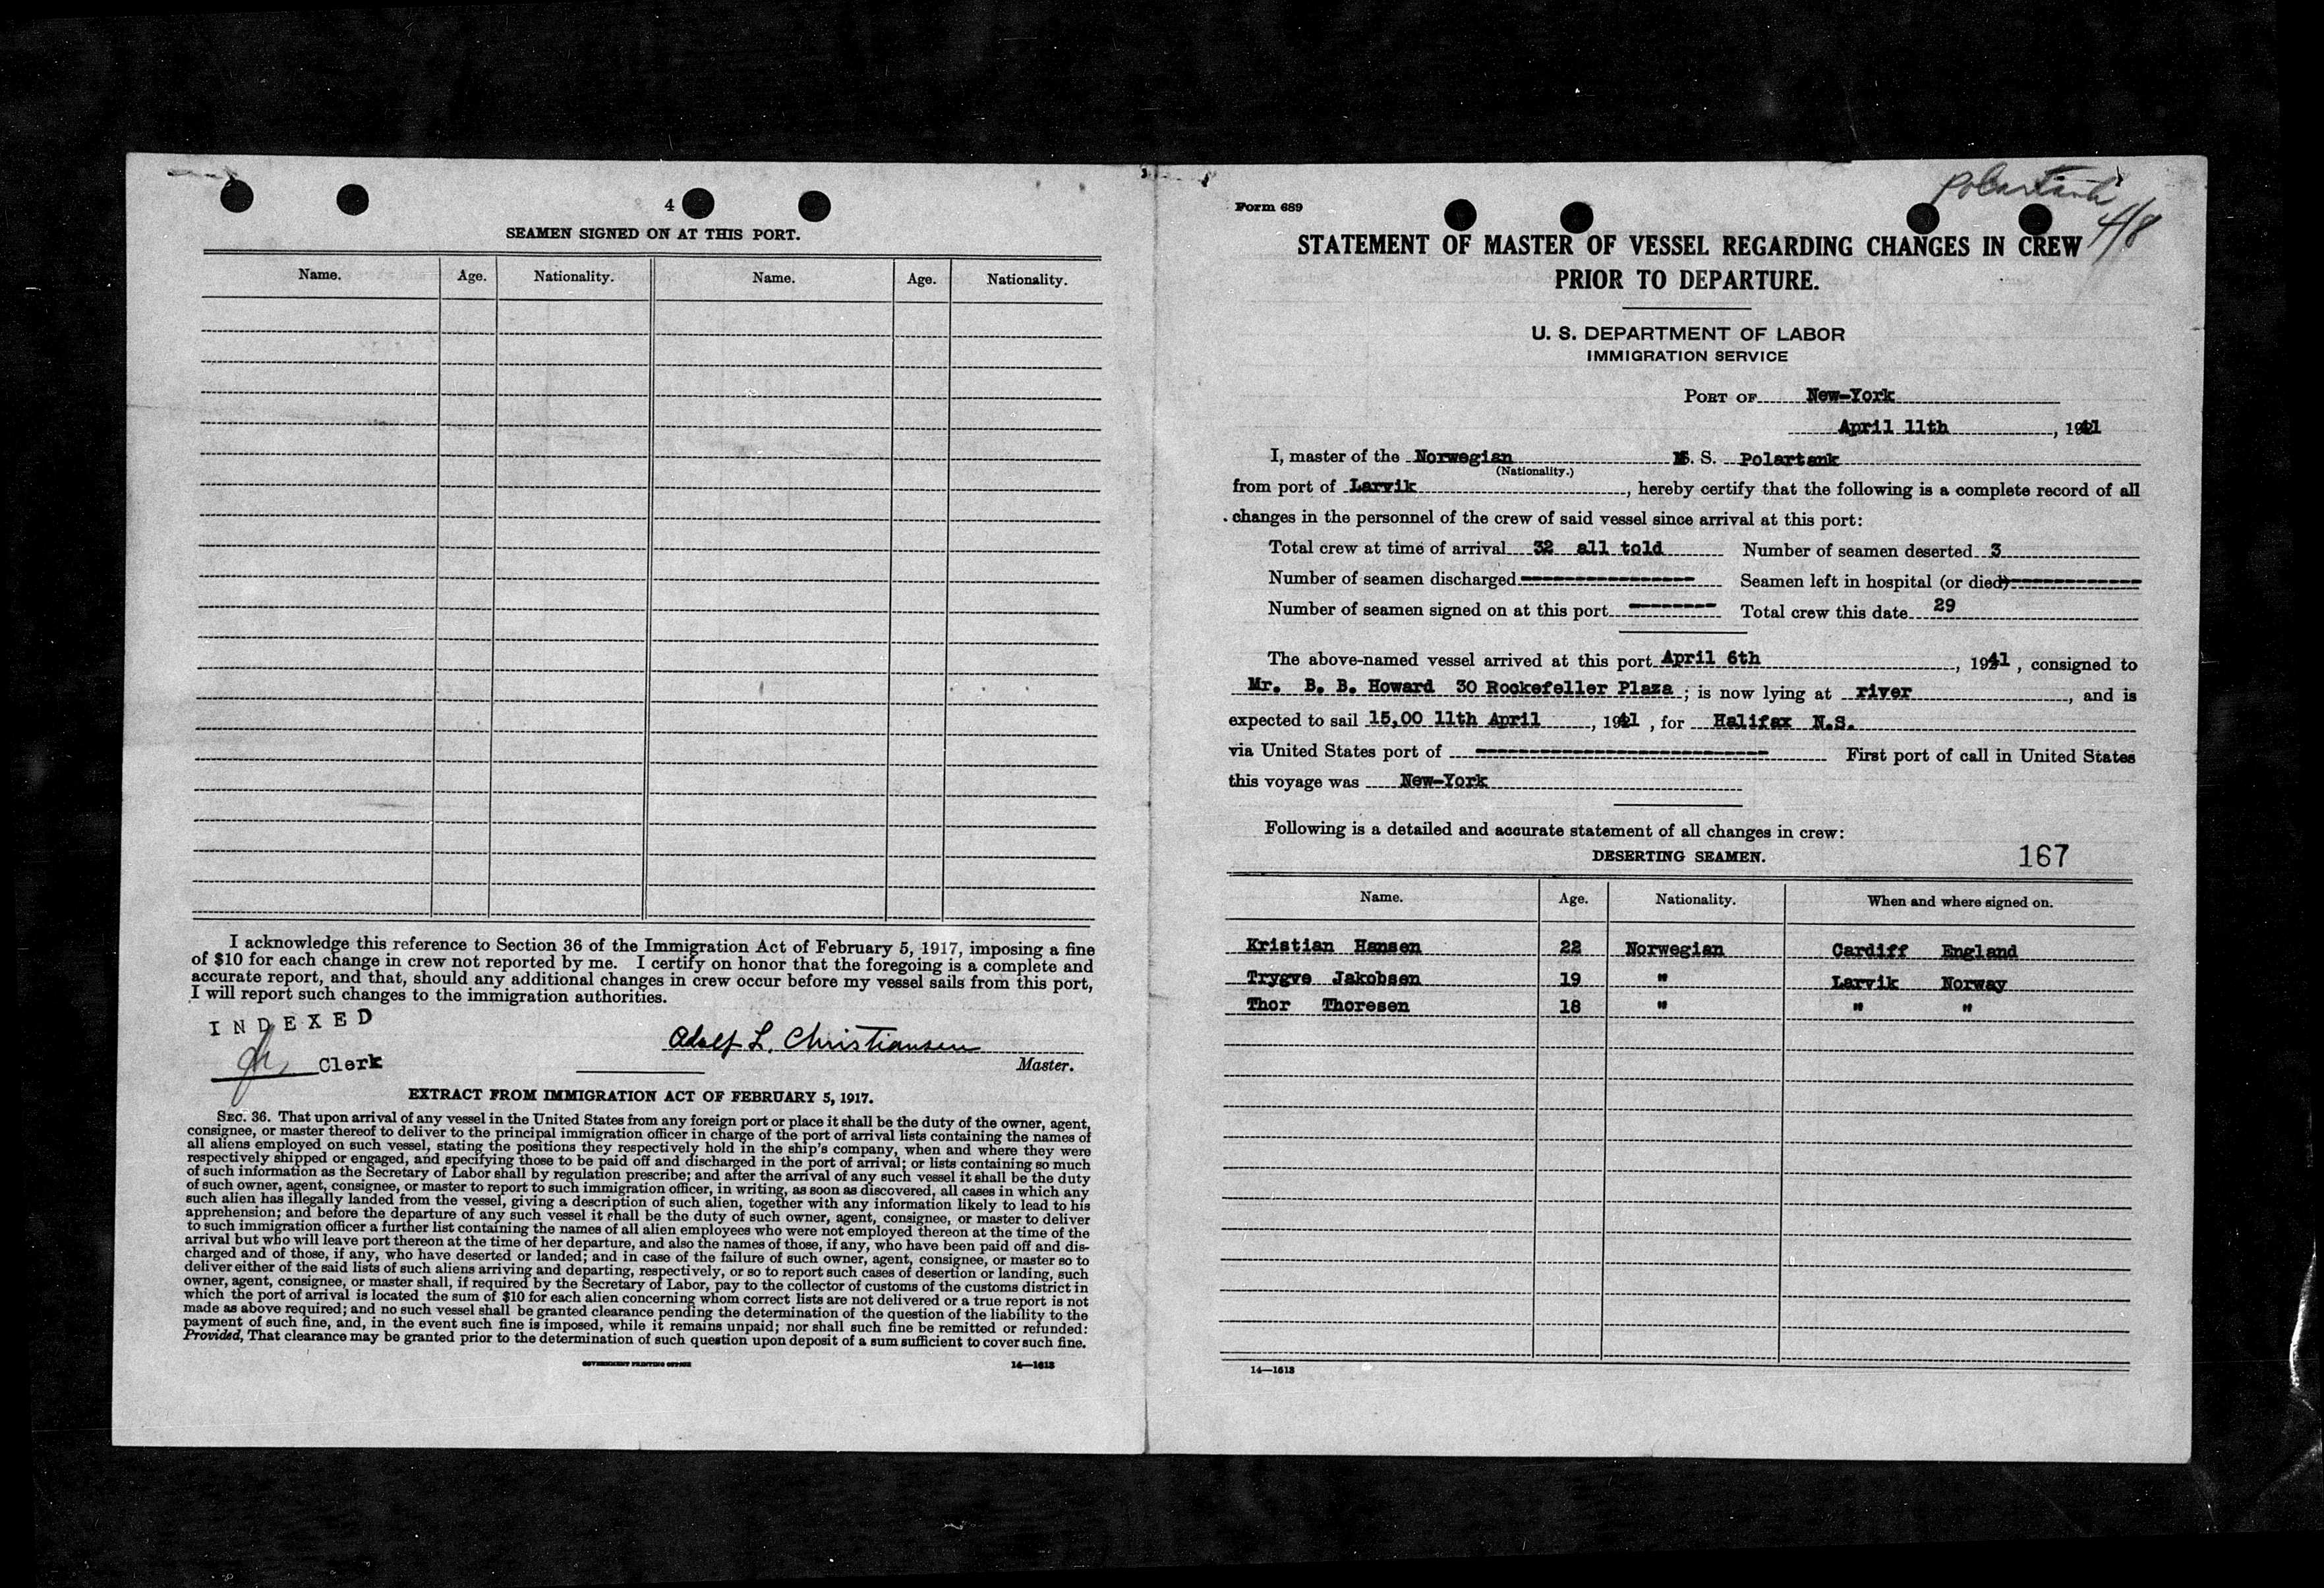 4
SEAMEN SIGNED ON AT THIS PORT.
Name. Age. Nationality. Name. Age. Nationality.
I acknowledge this reference to Section 36 of the Immigration Act of February 5, 1917, imposing a fine
of $10 for each change in crew not reported by me. I certify on honor that the foregoing is a complete and
accurate report, and that, should any additional changes in crew occur before my vessel sails from this port,
I will report such changes to the immigration authorities.
INDEXED
Clerk
Adolf L. Christiansen
Master.
EXTRACT FROM IMMIGRATION ACT OF FEBRUARY 5, 1917.
SEC. 36. That upon arrival of any vessel in the United States from any foreign port or place it shall be the duty of the owner, agent,
consignee, or master thereof to deliver to the principal immigration officer in charge of the port of arrival lists containing the names of
all aliens employed on such vessel, stating the positions they respectively hold in the ship's company, when and where they were
respectively shipped or engaged, and specifying those to be paid off and discharged in the port of arrival; or lists containing so much
of such information as the Secretary of Labor shall by regulation prescribe; and after the arrival of any such vessel it shall be the duty
of such owner, agent, consignee, or master to report to such immigration officer, in writing, as soon as discovered, all cases in which any
such alien has illegally landed from the vessel, giving a description of such alien, together with any information likely to lead to his
apprehension; and before the departure of any such vessel it shall be the duty of such owner, agent, consignee, or master to deliver
to such immigration officer a further list containing the names of all alien employees who were not employed thereon at the time of the
arrival but who will leave port thereon at the time of her departure, and also the names of those, if any, who have been paid off and dis-
charged and of those, if any, who have deserted or landed; and in case of the failure of such owner, agent, consignee, or master so to
deliver either of the said lists of such aliens arriving and departing, respectively, or so to report such cases of desertion or landing, such
owner, agent, consignee, or master shall, if required by the Secretary of Labor, pay to the collector of customs of the customs district in
which the port of arrival is located the sum of $10 for each alien concerning whom correct lists are not delivered or a true report is not
made as above required; and no such vessel shall be granted clearance pending the determination of the question of the liability to the
payment of such fine, and, in the event such fine is imposed, while it remains unpaid; nor shall such fine be remitted or refunded:
Provided, That clearance may be granted prior to the determination of such question upon deposit of a sum sufficient to cover such fine.
GOVERNMENT PRINTING OFFICE 14—1613
Polartank
4/8
Form 689
STATEMENT OF MASTER OF VESSEL REGARDING CHANGES IN CREW
PRIOR TO DEPARTURE.
U. S. DEPARTMENT OF LABOR
IMMIGRATION SERVICE
PORT OF New-York
April 11th, 1941
I, master of the Norwegian M. S. Polartank
(Nationality.)
from port of Larvik, hereby certify that the following is a complete record of all
changes in the personnel of the crew of said vessel since arrival at this port:
Total crew at time of arrival 32 all told Number of seamen deserted 3
Number of seamen discharged ---------------- Seamen left in hospital (or died) ------------
Number of seamen signed on at this port -------- Total crew this date 29
The above-named vessel arrived at this port April 6th, 1941, consigned to
Mr. B. B. Howard 30 Rockefeller Plaza; is now lying at river, and is
expected to sail 15,00 11th April, 1941, for Halifax N.S.
via United States port of -------------------------- First port of call in United States
this voyage was New-York
Following is a detailed and accurate statement of all changes in crew:
DESERTING SEAMEN. 167
Name. Age. Nationality. When and where signed on.
Kristian Hansen 22 Norwegian Cardiff England
Trygve Jakobsen 19 " Larvik Norway
Thor Thoresen 18 " " "
14—1613